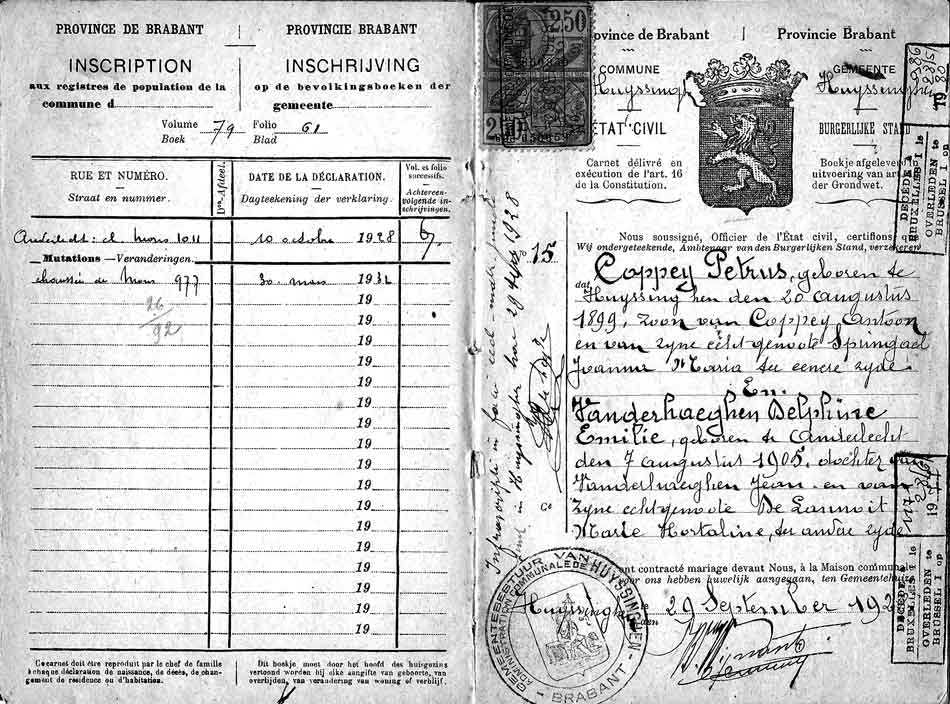 PROVINCE DE BRABANT | PROVINCIE BRABANT
INSCRIPTION
aux registres de population de la
commune d
INSCHRIJVING
op de bevolkingsboeken der
gemeente
Volume 79 Folio 61
Boek Blad
RUE ET NUMÉRO.
Straat en nummer.
Dre Afdeel.
DATE DE LA DÉCLARATION.
Dagteekening der verklaring.
Vol. et folio
successifs.
Achtereen-
volgende in-
schrijvingen.
Anderlecht: ch. Mons 1011 10 octobre 1928
Mutations — Veranderingen.
chaussée de Mons 977 30 mars 193
26
92
19
19
19
19
19
19
19
19
19
19
19
19
19
19
19
19
Ce carnet doit être reproduit par le chef de famille
à chaque déclaration de naissance, de décès, de chan-
gement de résidence ou d'habitation.
Dit boekje moet door het hoofd des huisgezins
vertoond worden bij elke aangifte van geboorte, van
overlijden, van verandering van woning of verblijf.
2.50
ovince de Brabant | Provincie Brabant
COMMUNE
Huyssinghen
GEMEENTE
Huyssinghen
ÉTAT CIVIL
BURGERLIJKE STAND
Carnet délivré en
exécution de l'art. 16
de la Constitution.
Boekje afgeleverd
uitvoering van art
der Grondwet.
Nous soussigné, Officier de l'État civil, certifions que
Wij ondergeteekende, Ambtenaar van den Burgerlijken Stand, verzekeren
dat
15.
Coppey Petrus, geboren te
Huyssinghen den 20 augustus
1899, zoon van Coppey Antoon
en van zyne echtgenoote Springael
Joanna Maria ter eenere zyde.
En.
Vanderhaeghen Delphine
Emilie, geboren te Anderlecht
den 7 augustus 1905, dochter van
Vanderhaeghen Jean en van
zyne echtgenoote De Lannoit
Marie Hortaline, ter andere zyde
ont contracté mariage devant Nous, à la Maison communale
voor ons hebben huwelijk aangegaan, ten Gemeentehuize
Huyssinghen 29 September 192
GEMEENTEBESTUUR VAN HUYSSINGHEN
ADMINISTRATION COMMUNALE DE
- BRABANT -
DÉCÉDÉ À
BRUXELLES I le
OVERLEDEN te
BRUSSEL I op
DÉCÉDÉ
BRUXELLES I le
OVERLEDEN te
BRUSSEL I op